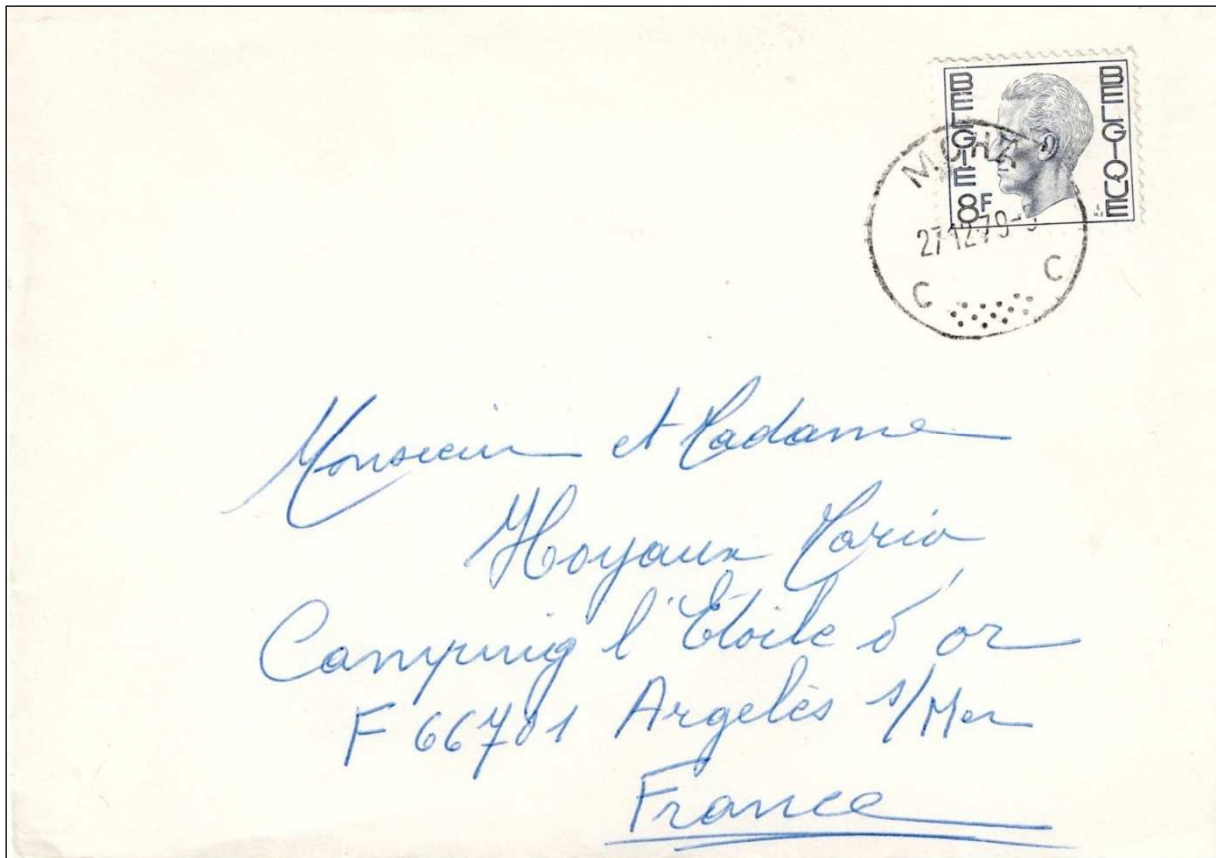 BELGIE 8F
BELGIQUE
27-12-79
C C
Monsieur et Madame
Hoyaux Mario
Camping l'Étoile d'or
F 66701 Argelès s/Mer
France